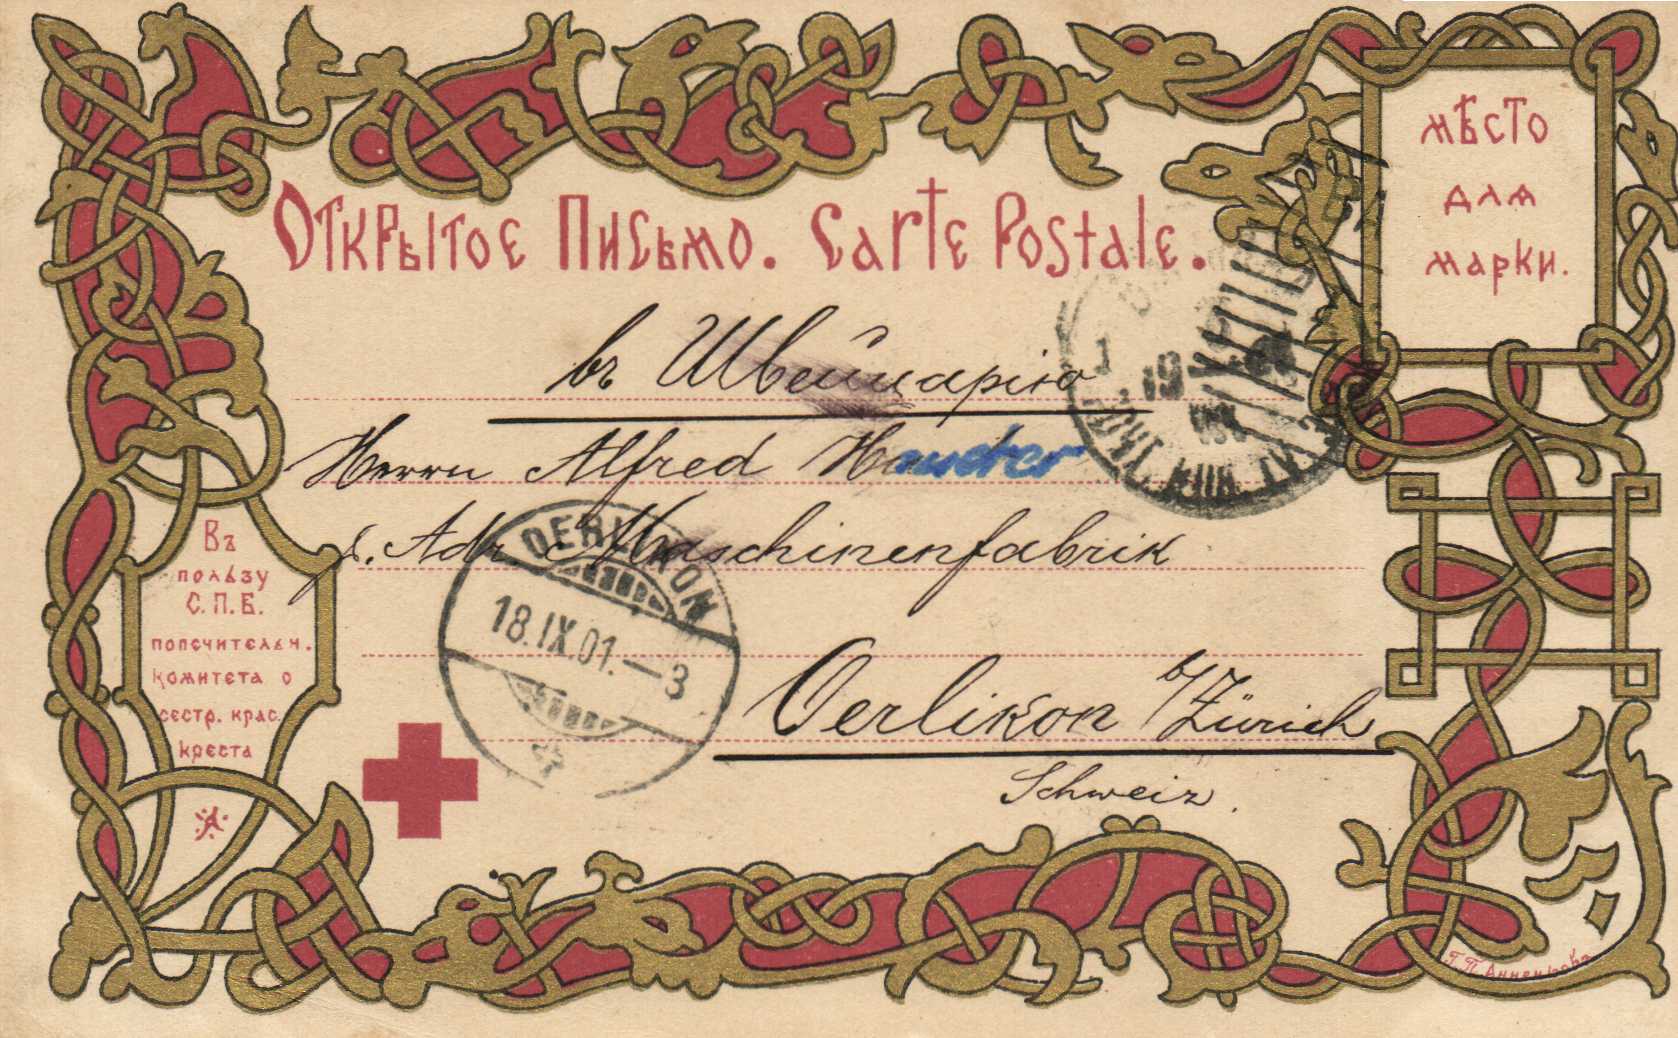 Открытое Письмо. Carte Postale.
Мѣсто
для
марки.
въ Швейцарію
Herrn Alfred
p. Adr. Maschinenfabrik
Oerlikon b/Zürich
Schweiz.
OERLIKON
18.IX.01.—3
Въ
пользу
С.П.Б.
попечительн.
комитета о
сестр. крас.
креста
Г.П. Анненковъ